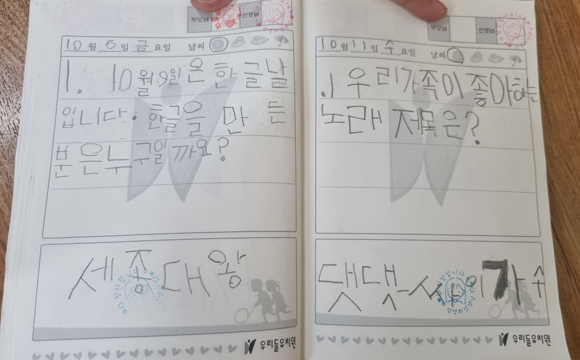 부모님
선생님
10월 6일 금요일 날씨
1. 10월9일은 한글날
입니다. 한글을 만든
분은누구일까요?
세종대왕
우리들유치원
부모님
선생님
10월 11일 수요일 날씨
.1 우리가족이 좋아하는
노래 제목은?
댓댓-싸이가수
우리들유치원